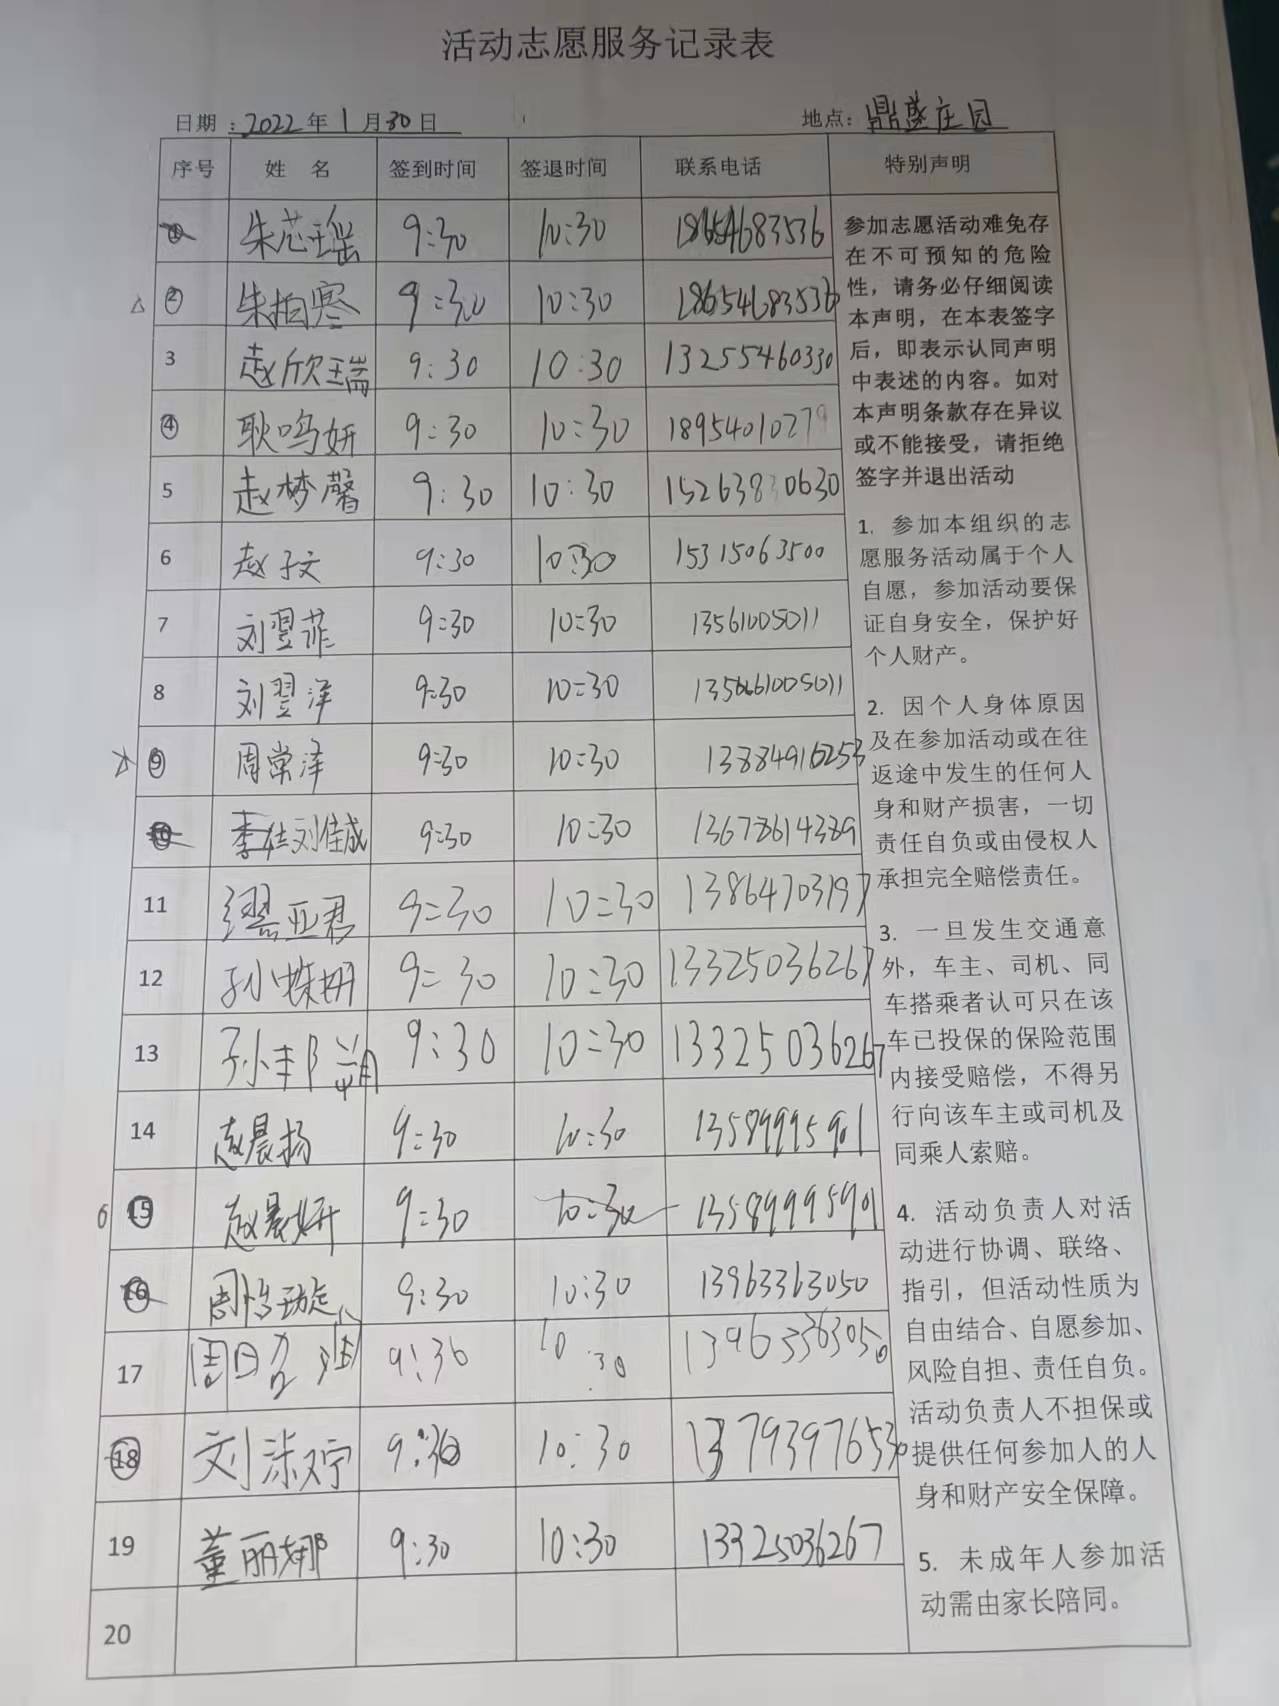 活动志愿服务记录表
日期：2022年1月30日 地点：鼎盛庄园
序号 姓 名 签到时间 签退时间 联系电话 特别声明
1 朱芯瑶 9:30 10:30 18654683536
2 朱柏寒 9:30 10:30 18654683536
3 赵欣瑞 9:30 10:30 13255460330
4 耿鸣妍 9:30 10:30 18954010279
5 赵梦馨 9:30 10:30 15263830630
6 赵子文 9:30 10:30 15315063500
7 刘翌菲 9:30 10:30 13561005011
8 刘翌洋 9:30 10:30
9 周棠泽 9:30 10:30 13884916253
10 刘佳成 9:30 10:30 13678614389
11 亚君 9:30 10:30 13864703197
12 孙姝玥 9:30 10:30 13325036267
13 孙邦 9:30 10:30 13325036267
14 赵晨扬 9:30 10:30 13589995901
15 赵晨妍 9:30 10:30 13589995901
16 周 璇 9:30 10:30 13963363050
17 周 9:30 10:30 13963363050
18 刘 宁 9:30 10:30 13793976530
19 董丽娜 9:30 10:30 13325036267
20
参加志愿活动难免存
在不可预知的危险
性，请务必仔细阅读
本声明，在本表签字
后，即表示认同声明
中表述的内容。如对
本声明条款存在异议
或不能接受，请拒绝
签字并退出活动
1. 参加本组织的志
愿服务活动属于个人
自愿，参加活动要保
证自身安全，保护好
个人财产。
2. 因个人身体原因
及在参加活动或在往
返途中发生的任何人
身和财产损害，一切
责任自负或由侵权人
承担完全赔偿责任。
3. 一旦发生交通意
外，车主、司机、同
车搭乘者认可只在该
车已投保的保险范围
内接受赔偿，不得另
行向该车主或司机及
同乘人索赔。
4. 活动负责人对活
动进行协调、联络、
指引，但活动性质为
自由结合、自愿参加、
风险自担、责任自负。
活动负责人不担保或
提供任何参加人的人
身和财产安全保障。
5. 未成年人参加活
动需由家长陪同。